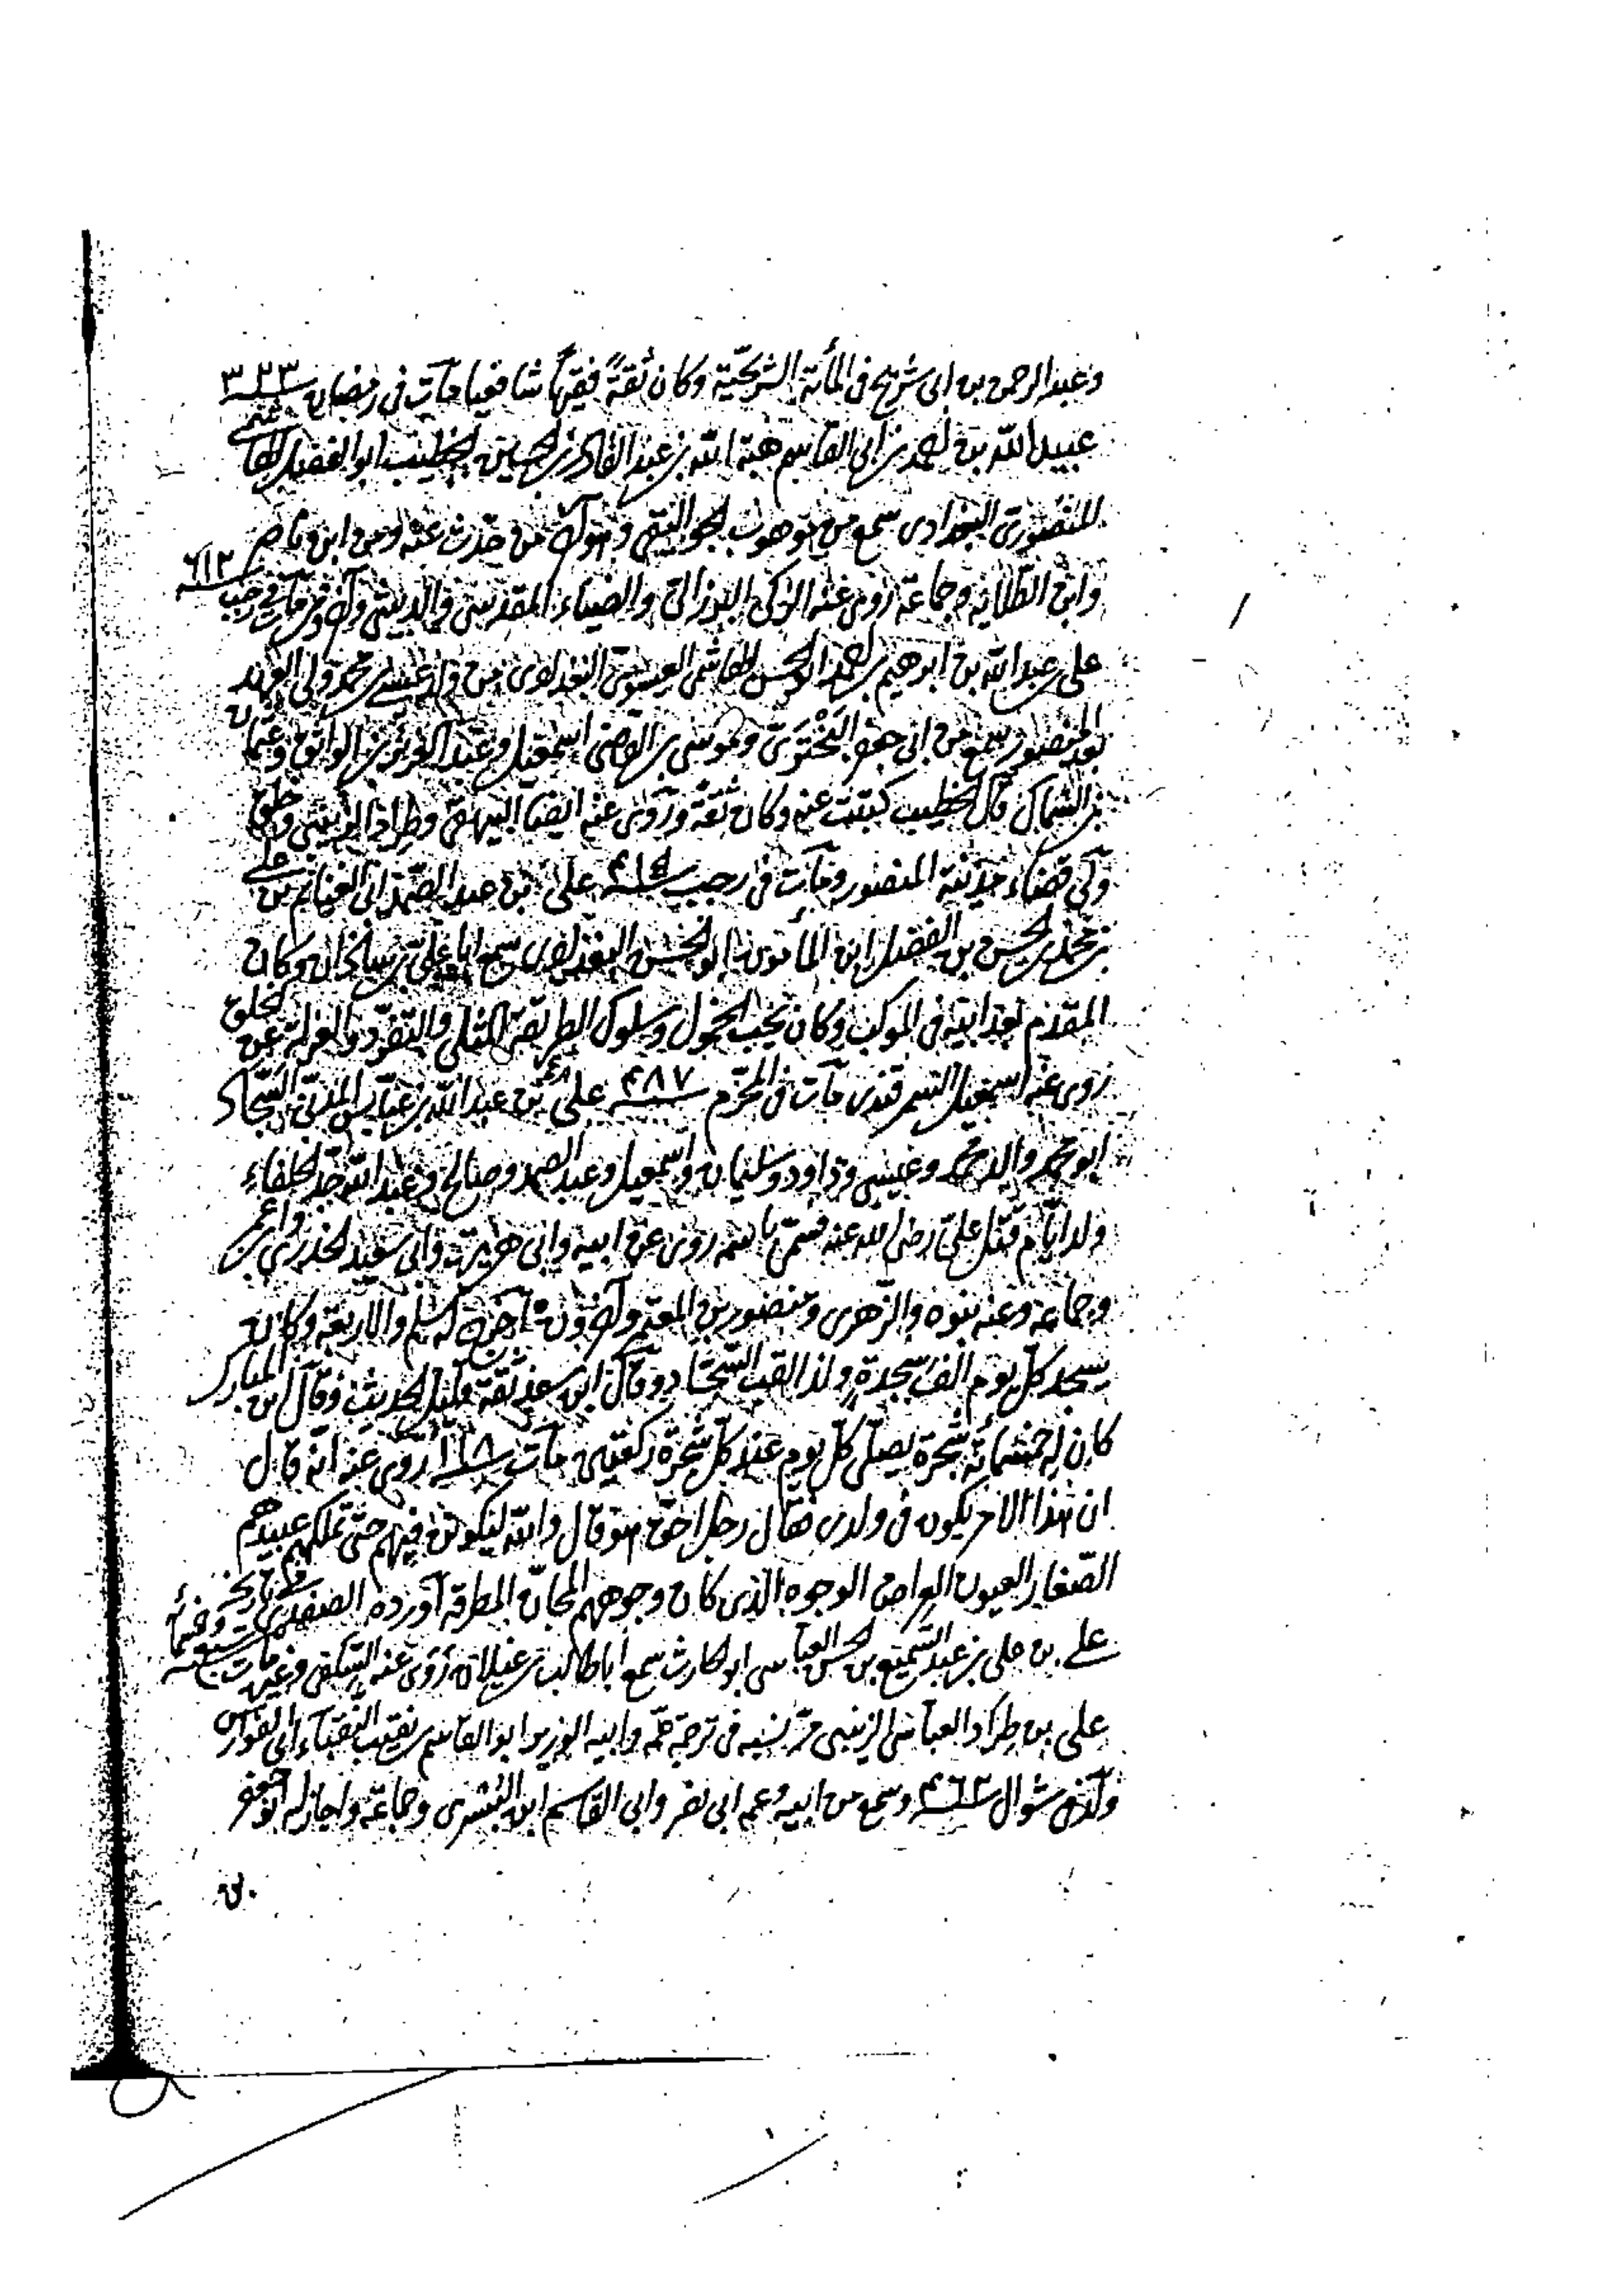 وعبد الرحمن بن ابى شريح فى المائة الشريحية وكان ثقة فقيها شافعيا مات فى رمضان سنة ٣٣٣
عبيد الله بن احمد بن ابى القاسم هبة الله بن عبد القادر بن الحسين الخطيب ابو الفضل الها شمى
المنصورى البغدادى سمع من موهوب الجواليقى وهو آخر من حدث عنه ومن ابن ناصر
وابن الطلاية وجماعة روى عنه الزكى البرزالى والضياء المقدسى والدبيثى وآخرون مات فى رجب ٦١٣
على بن عبد الله بن ابرهيم بن احمد ابو الحسن الهاشمى العيسوى البغدادى من ولد عيسى بن محمد ولى العهد
بعد المنصور سمع من ابى جعفر البخترى وموسى بن القاضى اسمعيل وعبد العزيز بن الواثق وعثمان
بن السماك قال الخطيب كتبت عنه وكان ثقة وروى عنه ايضا البيهقى وطراد الزينبى وخلق
ولى قضاء مدينة المنصور ومات فى رجب سنة ٤١٥ على بن عبد الصمد ابى الغنائم بن على
بن محمد بن الحسن بن الفضل ابن المأمون ابو الحسن البغدادى سمع ابا على بن شاذان وكان
المقدم بعد ابيه فى الموكب وكان يحب الخمول وسلوك الطريقة المثلى والتفرد والعزلة عن الخلق
روى عنه اسمعيل السمرقندى مات فى المحرم سنة ٤٨٧ على بن عبد الله بن عباس المدنى السجاد
ابو محمد والد محمد وعيسى وداود وسليمان واسمعيل وعبد الصمد وصالح وعبد الله جد الخلفاء
ولد ايام قتل على رضى الله عنه فسمى باسمه روى عن ابيه وابى هريرة وابى سعيد الخدرى وابن عمر
وجماعة وعنه بنوه والزهرى ومنصور بن المعتمر وآخرون اخرج له مسلم والاربعة وكان
يسجد كل يوم الف سجدة ولذا لقب السجاد وقال ابن سعد ثقة قليل الحديث وقال ابن المبارك
كان له خمسمائة شجرة يصلى كل يوم عند كل شجرة ركعتين مات سنة ١١٨ روى عنه انه قال
ان هذا الامر يكون فى ولدى فقال رجل احق هو قال والله ليكونن فيهم حتى تملكهم عبيدهم
الصغار العيون العراض الوجوه الذين كان وجوههم المجان المطرقة اورده الصفدى فى تاريخه
على بن على بن عبد السميع بن الحسن العباسى ابو الحارث سمع ابا طالب بن غيلان روى عنه السلفى وغيره مات سنة سبع وخمسمائة
على بن طراد العباسى الزينبى مر نسبه فى ترجمة عمه وابيه الوزير ابو القاسم بن نقيب النقباء ابى الفوارس
ولد فى شوال سنة ٤٦٢ وسمع من ابيه وعمه ابى نصر وابى القاسم ابن البسرى وجماعة واجاز له ابو جعفر